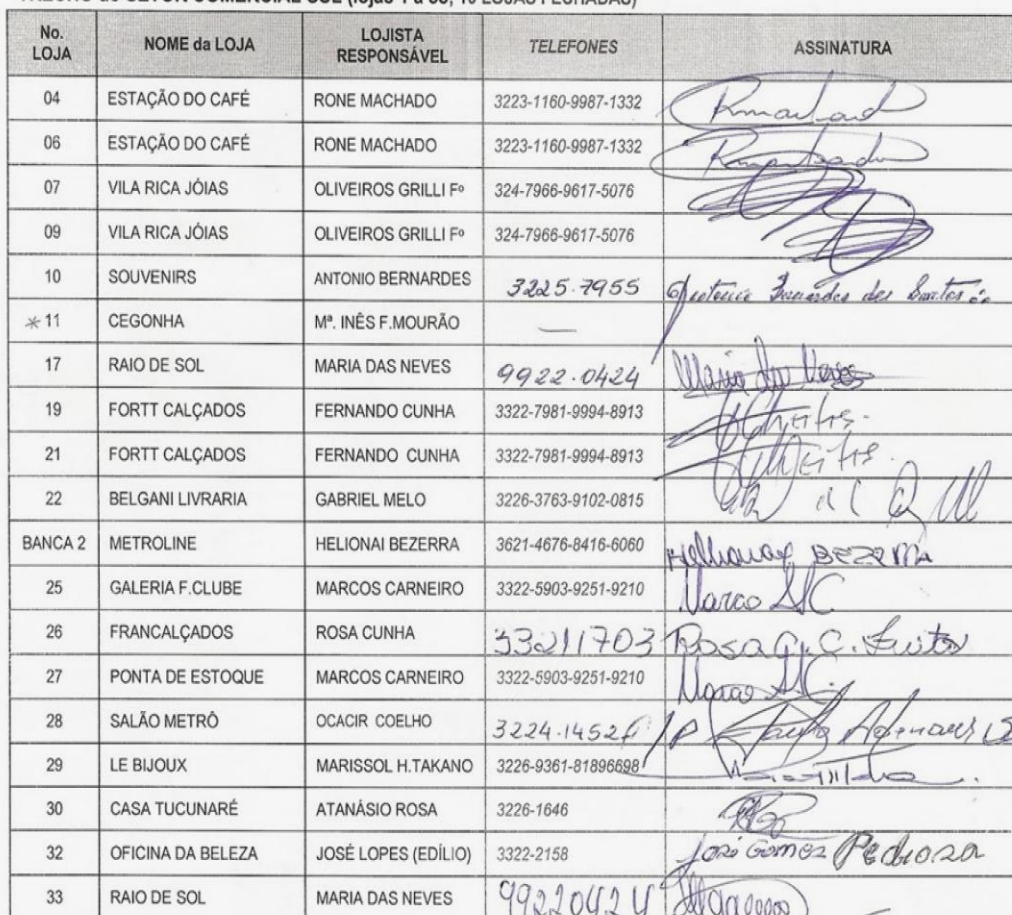 SETOR COMERCIAL SUL
No. LOJA NOME da LOJA LOJISTA RESPONSÁVEL TELEFONES ASSINATURA
04 ESTAÇÃO DO CAFÉ RONE MACHADO 3223-1160-9987-1332
06 ESTAÇÃO DO CAFÉ RONE MACHADO 3223-1160-9987-1332
07 VILA RICA JÓIAS OLIVEIROS GRILLI Fº 324-7966-9617-5076
09 VILA RICA JÓIAS OLIVEIROS GRILLI Fº 324-7966-9617-5076
10 SOUVENIRS ANTONIO BERNARDES 3225.7955
* 11 CEGONHA Mª. INÊS F.MOURÃO —
17 RAIO DE SOL MARIA DAS NEVES 9922.0424 Maria das Neves
19 FORTT CALÇADOS FERNANDO CUNHA 3322-7981-9994-8913
21 FORTT CALÇADOS FERNANDO CUNHA 3322-7981-9994-8913
22 BELGANI LIVRARIA GABRIEL MELO 3226-3763-9102-0815
BANCA 2 METROLINE HELIONAI BEZERRA 3621-4676-8416-6060
25 GALERIA F.CLUBE MARCOS CARNEIRO 3322-5903-9251-9210
26 FRANCALÇADOS ROSA CUNHA 33211703 Rosa G. C.
27 PONTA DE ESTOQUE MARCOS CARNEIRO 3322-5903-9251-9210
28 SALÃO METRÔ OCACIR COELHO 3224.1452
29 LE BIJOUX MARISSOL H.TAKANO 3226-9361-81896698
30 CASA TUCUNARÉ ATANÁSIO ROSA 3226-1646
32 OFICINA DA BELEZA JOSÉ LOPES (EDÍLIO) 3322-2158 José Gomez Pedroza
33 RAIO DE SOL MARIA DAS NEVES 99220424